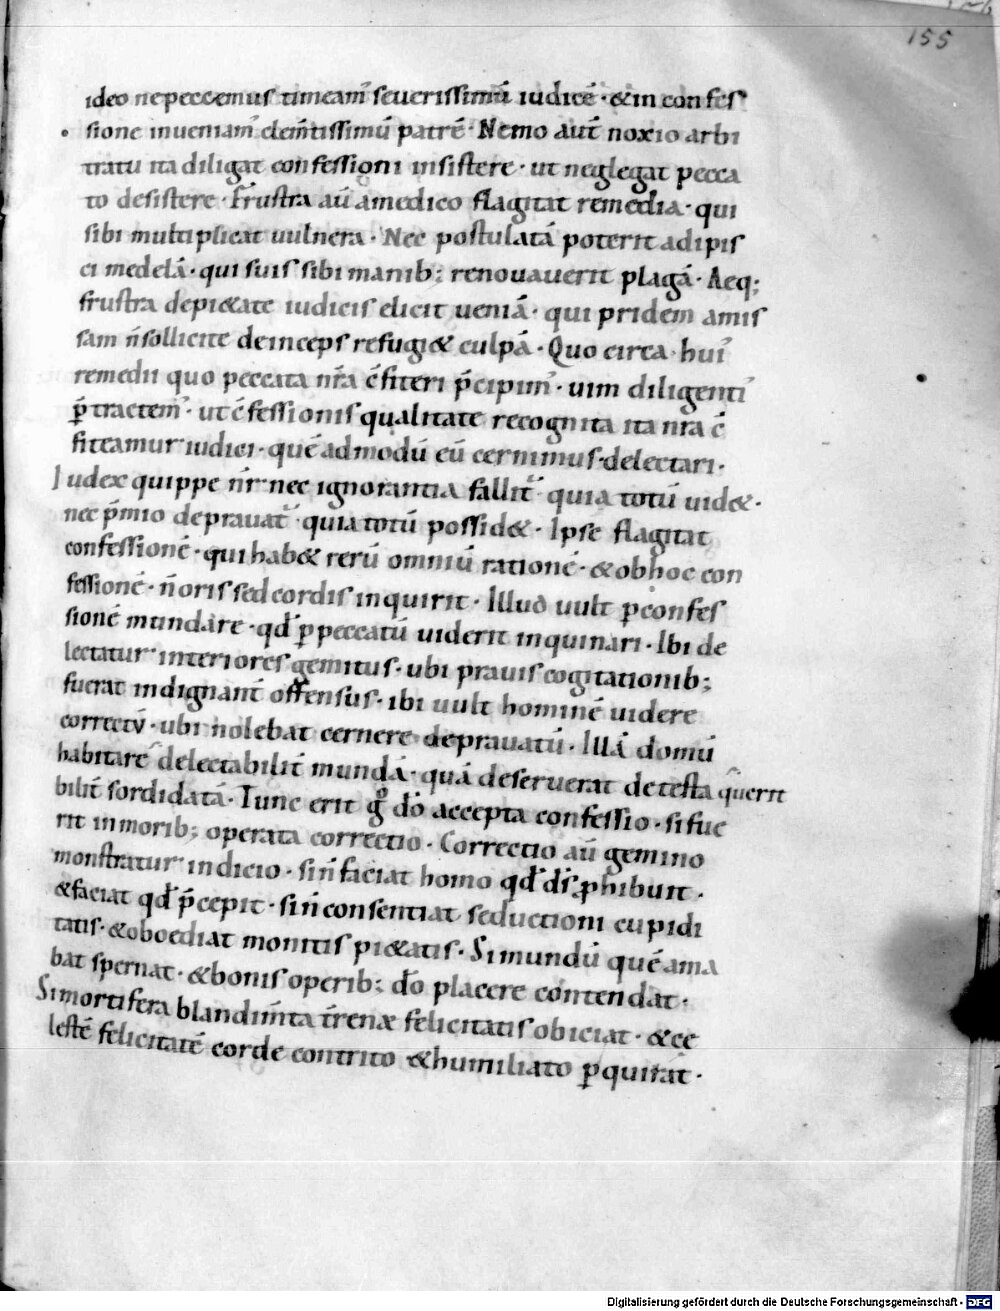 155
ideo ne peccemus timeam᷒ seuerissimū iudicē · & in confes
sione inueniam᷒ clem̄tissimū patrē · Nemo aut̄ noxio arbi
tratu ita diligat confessioni insistere · ut neglegat pecca
to desistere · Frustra aū a medico flagitat remedia · qui
sibi multiplicat uulnera · Nec postulatā poterit adipis
ci medelā · qui suis sibi manib; renouauerit plagā · Aeq;
frustra de pi&ate iudicis elicit ueniā · qui pridem amis
sam n̄ sollicite deinceps refugi& culpā · Quo circa hui᷒
remedii quo peccata nr̄a c̄fiteri p̄cipim᷒ · uim diligenti᷒
p̄tractem᷒ · ut c̄fessionis qualitate recognita ita nr̄a c̄
fiteamur iudici · quē ad modū eū cernimus delectari ·
Iudex quippe nr̄ nec ignorantia fallit᷒ · quia totū uid& ·
nec p̄mio deprauat᷒ · quia totū possid& · Ipse flagitat
confessionē · qui hab& rerū omniū rationē · & ob hoc con
fessionē · n̄ oris sed cordis inquirit · Illud uult ꝑ confes
sionē mundare · qd̄ ꝑ peccatū uiderit inquinari · Ibi de
lectatur interiores gemitus · ubi prauis cogitationib;
fuerat indignant̄ offensus · ibi uult hominē uidere
correctū · ubi nolebat cernere deprauatū · Illā domū
habitare delectabilit̄ mundā · quā deseruerat detesta querit
bilit̄ sordidatā · Tunc erit gͦ dō accepta confessio · si fue
rit in morib; operata correctio · Correctio aū gemino
monstratur indicio · si n̄ faciat homo qd̄ ds̄ ꝓhibuit ·
& faciat qd̄ p̄cepit · si n̄ consentiat seductioni cupidi
tatis · & oboediat monitis pi&atis · Si mundū quē ama
bat spernat · & bonis operib; dō placere contendat ·
Si mortifera blandim̄ta t̄renæ felicitatis obiciat · & ce
lestē felicitatē corde contrito & humiliato ꝑquirat ·
Digitalisierung gefördert durch die Deutsche Forschungsgemeinschaft - DFG